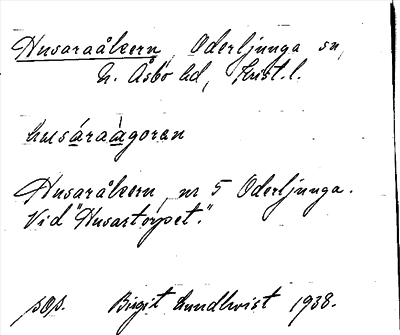 Husaraåkern, Oderljunga sn,
N. Åsbo hd, Krist. l.
husáraàgoren
Husaråkern, nr 5 Oderljunga.
Vid "Husartorpet."
pop. Birgit Lundkvist 1938.